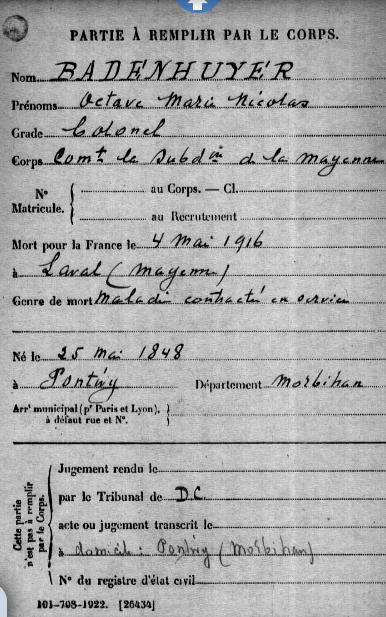 PARTIE À REMPLIR PAR LE CORPS.
Nom BADENHUYER
Prénoms Octave Marie Nicolas
Grade Colonel
Corps Comt la Subdon de la Mayenne
N° Matricule. { au Corps. — Cl.
au Recrutement
Mort pour la France le 4 Mai 1916
à Laval (Mayenne)
Genre de mort Maladie contractée en service
Né le 25 Mai 1848
à Pontivy Département Morbihan
Arrt municipal (pr Paris et Lyon), à défaut rue et N°. }
Cette partie n'est pas à remplir par le Corps. {
Jugement rendu le
par le Tribunal de D.C.
acte ou jugement transcrit le
à domicile : Pontivy (Morbihan)
N° du registre d'état civil
101-708-1922. [26434]